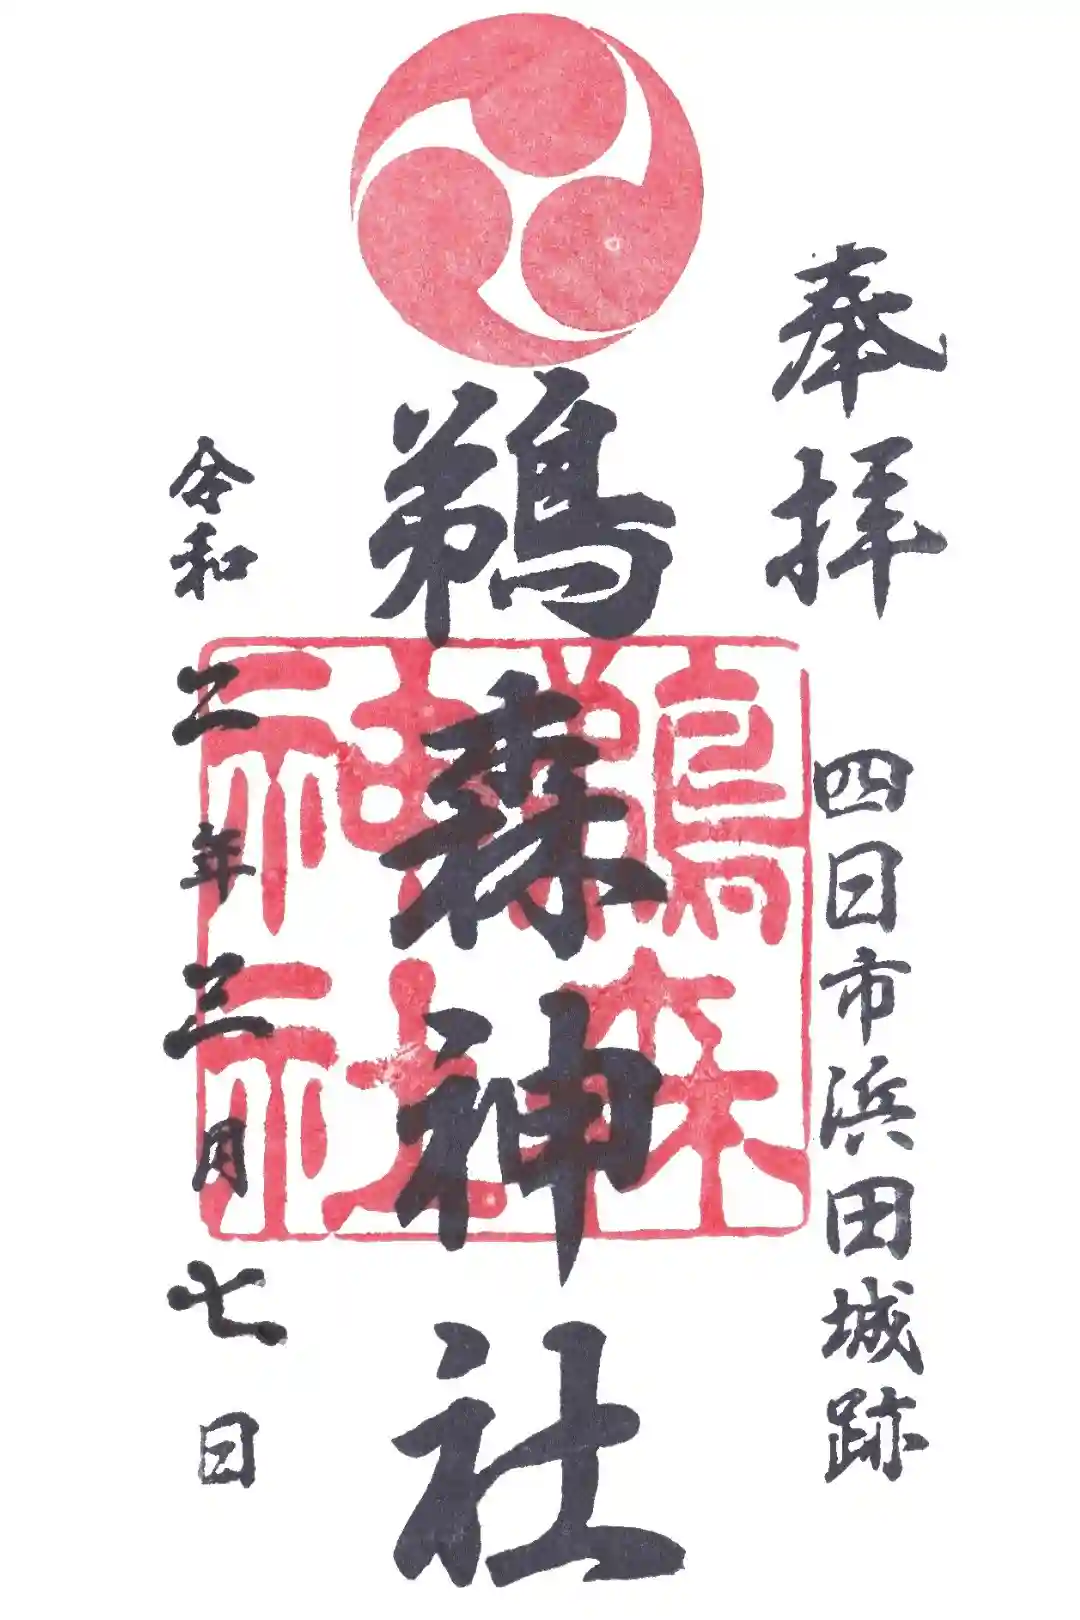 奉拝
四日市浜田城跡
鵜森神社
鵜森神社
令和二年三月七日